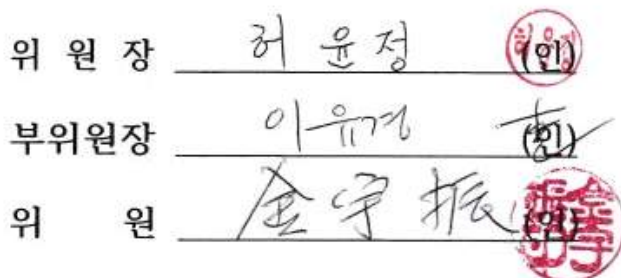 위 원 장 허 윤 정 (인)
부위원장 이유경 (인)
위 원 金宇振 (인)